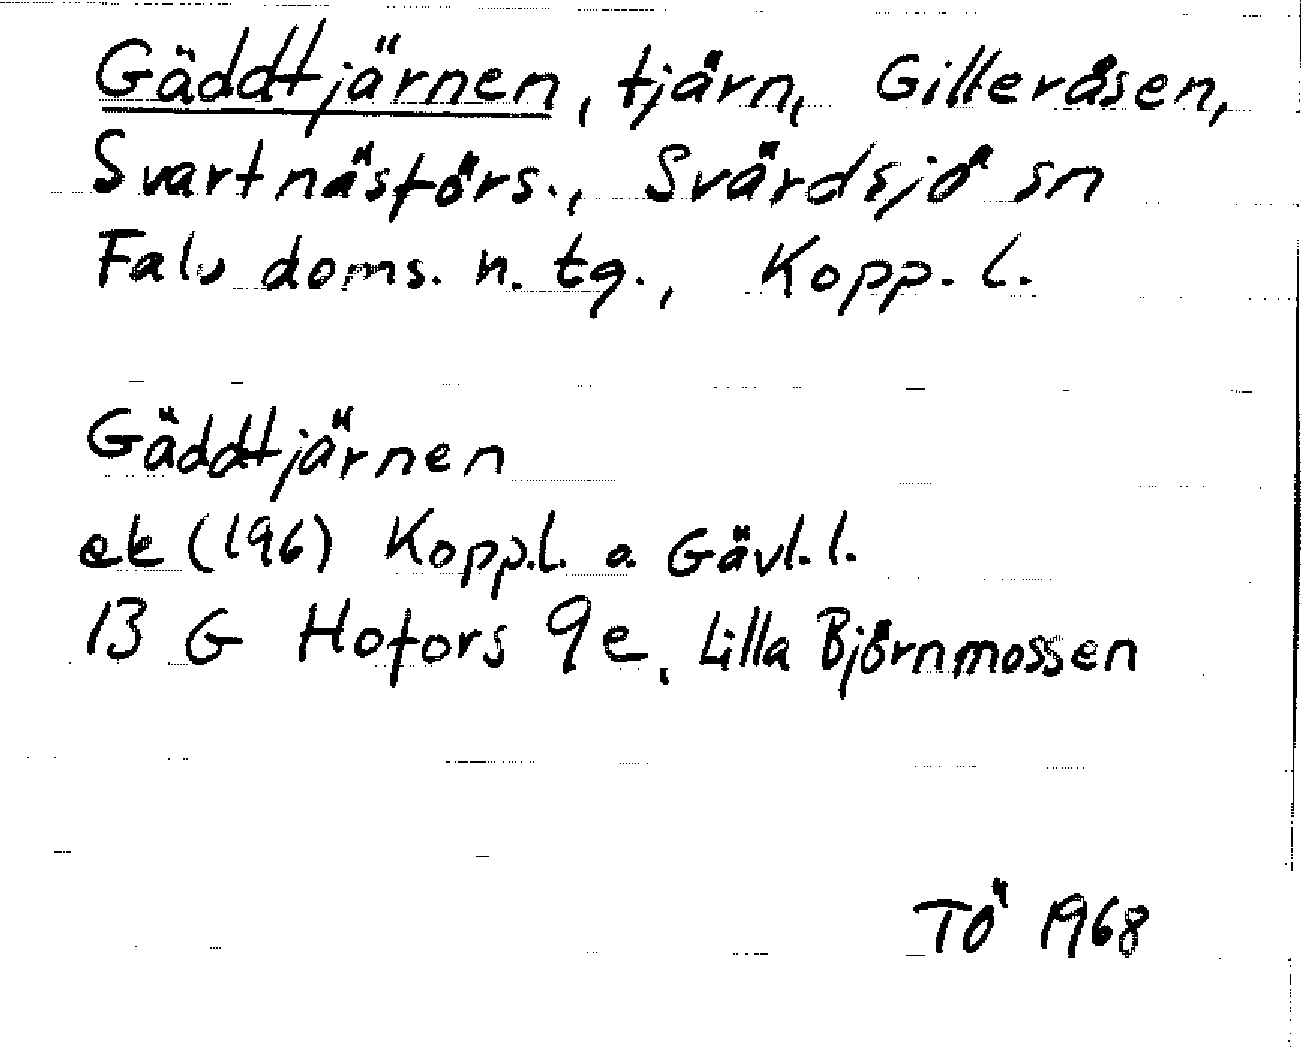 Gäddtjärnen, tjärn, Gilleråsen,
Svartnäsförs., Svärdsjö sn
Falu doms. n. tg., Kopp. l.
Gäddtjärnen
ek (196) Kopp.l. o. Gävl.l.
13 G Hofors 9e, Lilla Björnmossen
TÖ 1968